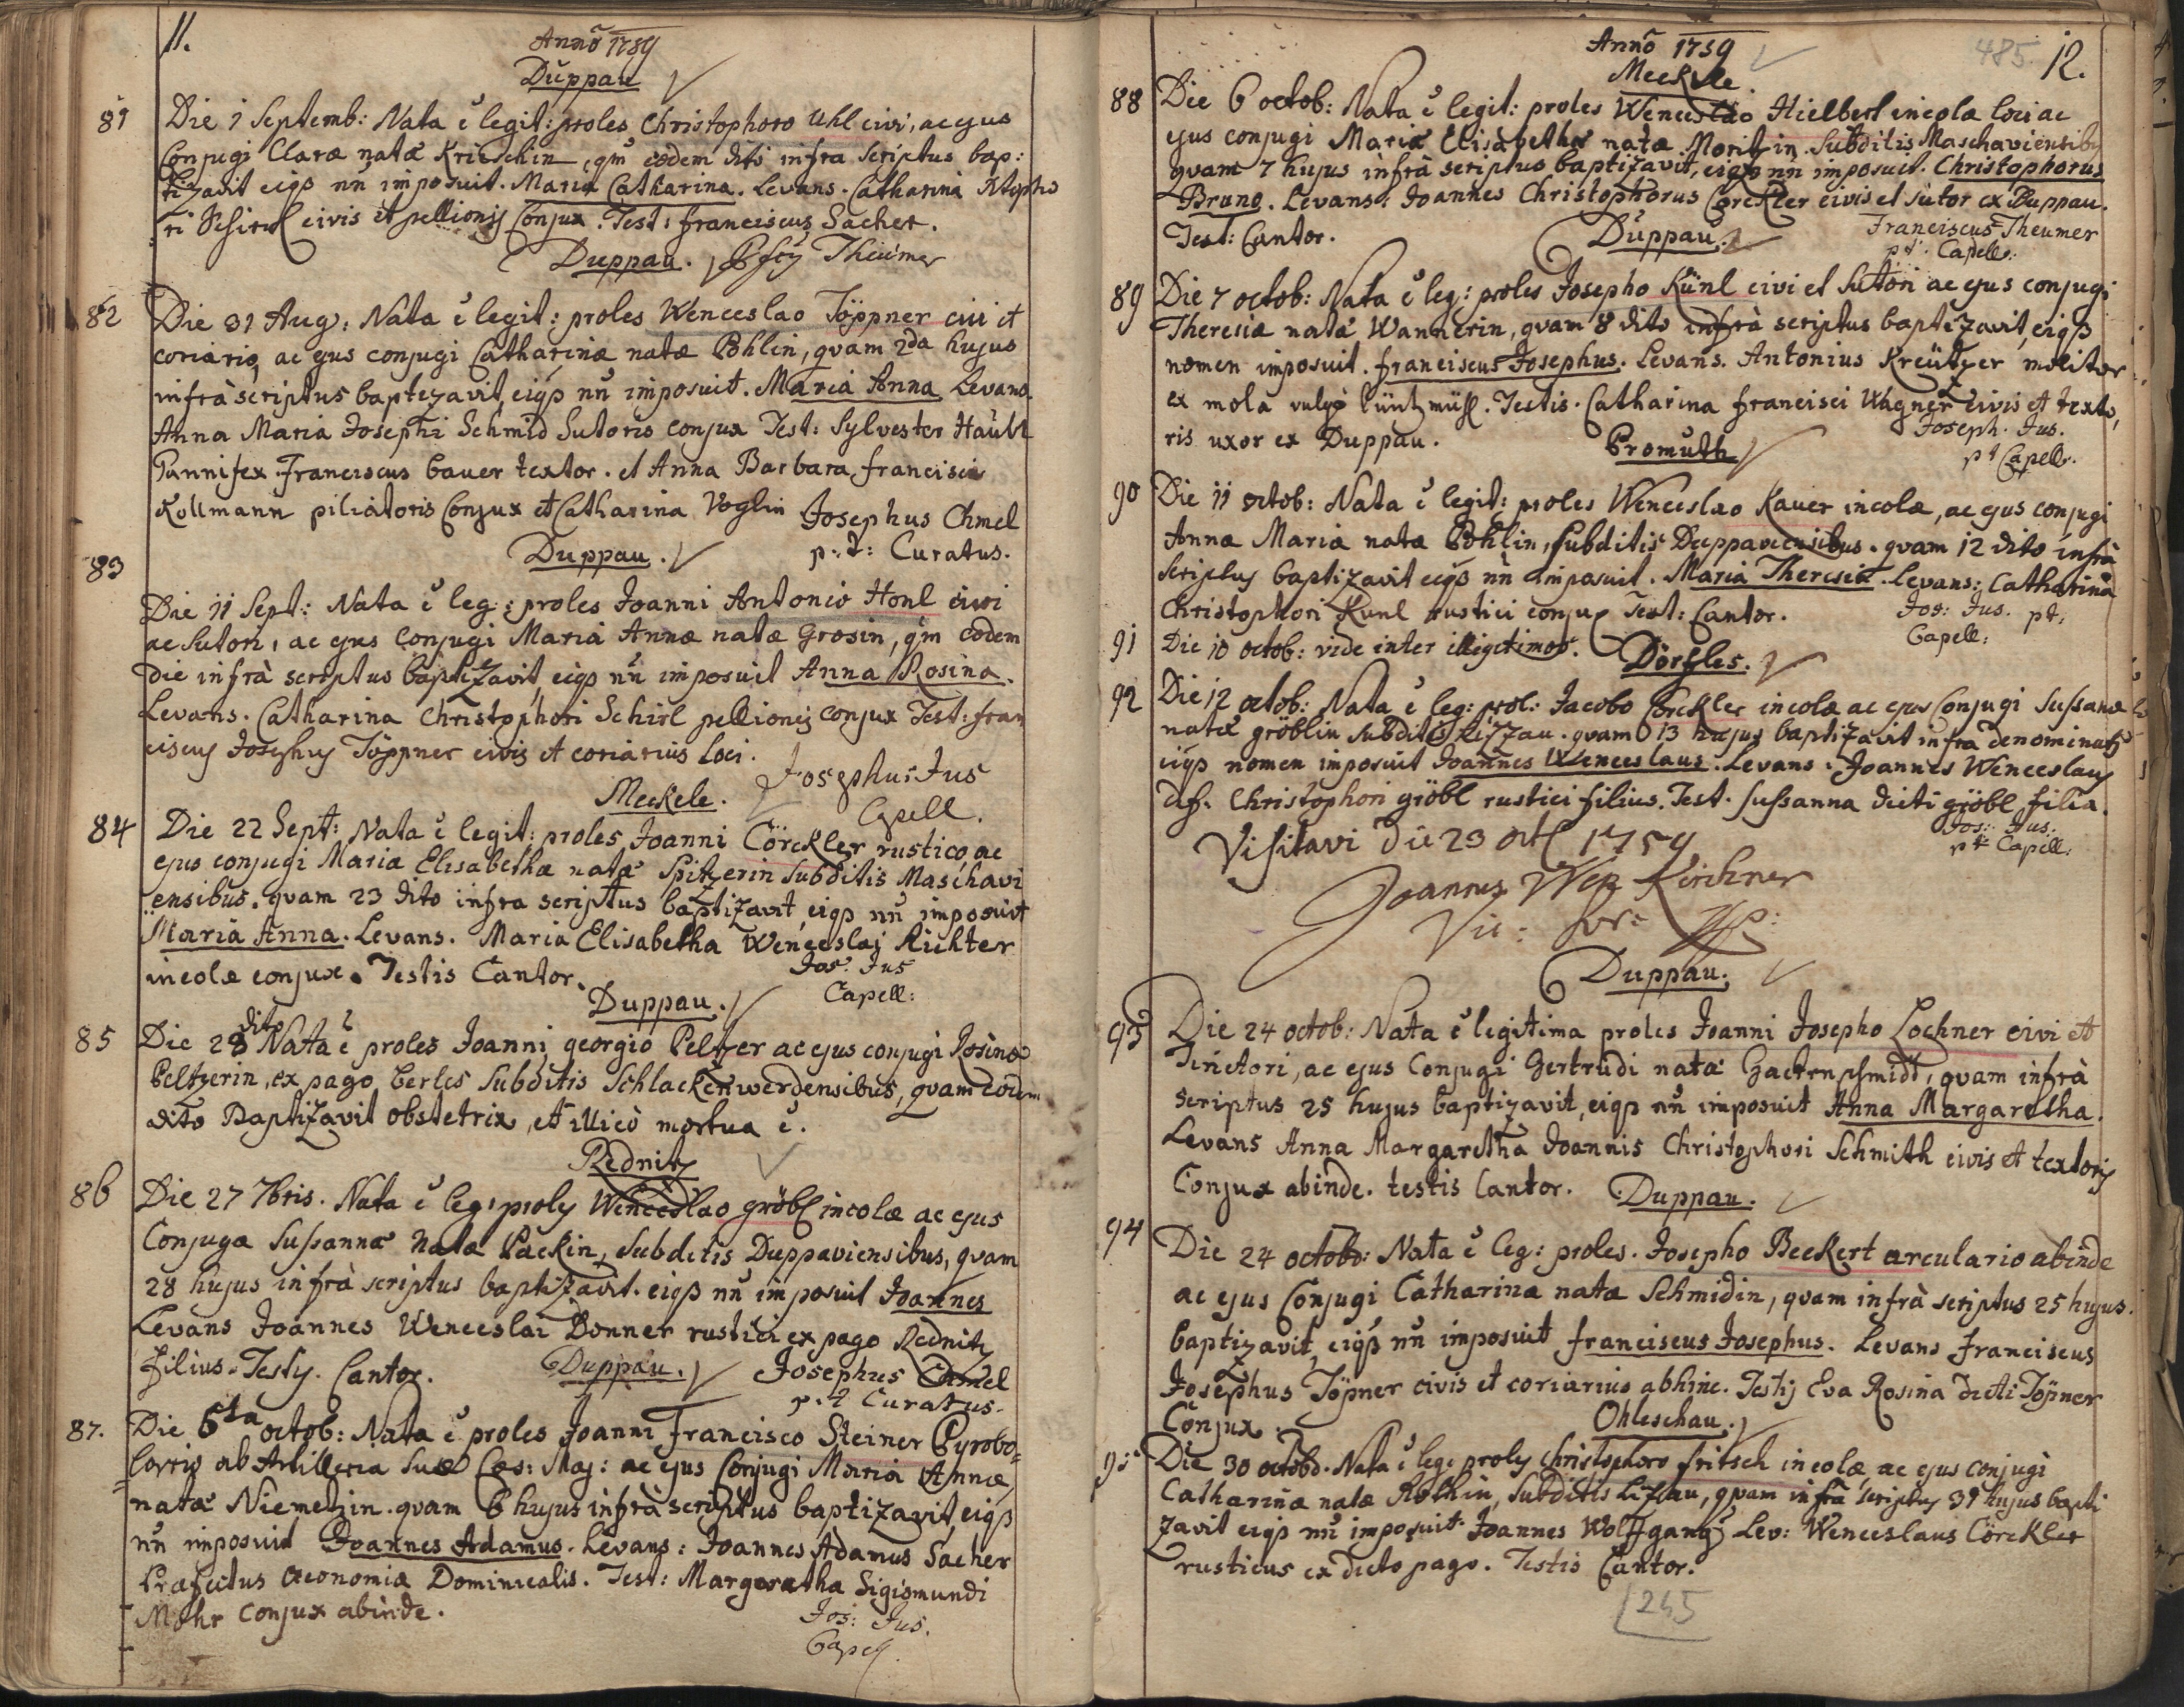 11.
Anno 1759
Duppau
81 Die 1 Septemb: Nata ẽ legit: proles Christophoro Uhl civi, ac ejus
Conjugi Claræ natæ Krieschin, qm̃ eodem dito infra scriptus bap:
tizavit eiq̃ß nñ imposuit. Maria Catharina. Levans. Catharina Xtopho
ri Schirl civis et pellionis Conjux. Test: franciscus Sacher.
Duppau. Theumer
82 Die 31 Aug: Nata ẽ legit: proles Wenceslao Töppner civi et
coriario, ac ejus conjugi Catharinæ natæ Pohlin, qvam 2da hujus
infrà scriptus baptizavit, eiq̃ß nñ imposuit. Maria Anna Levans.
Anna Maria Josephi Schmid Sutoris conjux Test: Sylvester Haubl
Pannifex Franciscus Bauer textor. et Anna Barbara francisci
Kollmann piliatoris Conjux et Catharina Voglin Josephus Chmel
p: t: Curatus.
Duppau.
83
Die 11 Sept: Nata ẽ leg: proles Joanni Antonio Honl civi
ac Sutori, ac ejus Conjugi Maria Annæ natæ Grosin, qm̃ eodem
die infrà scriptus baptizavit, eiq̃ß nñ imposuit Anna Rosina.
Levans. Catharina Christophori Schirl pellionis conjux Test: fran
ciscus Josephus Töppner civis et coriarius loci.
Josephus Jus
Capell.
Meckele.
84 Die 22 Sept: Nata ẽ legit: proles Joanni Cörckler rustico, ac
ejus conjugi Maria Elisabethæ natæ Spitzerin Subditis Maschavi
ensibus. qvam 23 dito infra scriptus baptizavit, eiq̃ß nñ imposuit
Maria Anna. Levans. Maria Elisabetha Wenceslai Richter
incolæ conjux. Testis Cantor.
Jos: Jus
Capell:
Duppau.
85 Die 28 dito Nata ẽ proles Joanni georgio Peltzer ac ejus conjugi Rosinæ
Peltzerin, ex pago Berles Subditis Schlackenwerdensibus, qvam eodem
dito Baptizavit obstetrix, et illicò mortua ẽ.
Rednitz
86 Die 27 7bris. Nata ẽ leg: proles Wenceslao gröbl incolæ ac ejus
Conjuga Sußannæ Natæ Packin, Subditis Duppaviensibus, qvam
28 hujus infrà scriptus baptizavit. eiq̃ß nñ imposuit Joannes
Levans Joannes Wenceslai Donner rustici ex pago Rednitz
filius. Testis. Cantor. Josephus Chmel
p: t Curatus.
Duppau.
87. Die 5ta octob: Nata ẽ proles Joanni Francisco Steiner Pyrobo=
lario ab Artilleria Suæ Cæs: Maj: ac ejus Conjugi Maria Annæ,
natæ Niemetzin. qvam 6 hujus infrà scriptus baptizavit, eiq̃ß
nñ imposuit Joannes Adamus. Levans: Joannes Adamus Sacher
Præfectus œconomiæ Dominicalis. Test: Margaretha Sigismundi
Mohr Conjux abinde.
Jos: Jus.
Capell.
485. 12.
Anno 1759
Meckele.
88 Die 6 octob: Nata ẽ legit: proles Wenceslao Hielberl incolæ loci ac
ejus conjugi Maria Elisabethæ natæ Moritzin. Subditis Maschaviensibus
qvam 7 hujus infrà scriptus baptizavit, eiq̃ß nñ imposuit. Christophorus
Bruno. Levans: Joannes Christophorus Corckler civis et sutor ex Duppau.
Test: Cantor.
Franciscus Theumer
pt: Capell:
Duppau.
89 Die 7 octob: Nata ẽ leg: proles Josepho Künl civi et Sutori ac ejus conjugi
Theresiæ natæ Wannerin, qvam 8 dito infrà scriptus baptizavit, eiq̃ß
nomen imposuit. franciscus Josephus. Levans. Antonius Kreützer molitor
ex mola vulgò Küntzmüll. Testis. Catharina francisci Wagner civis et texto,
ris uxor ex Duppau.
Joseph. Jus.
pt Capell.
Promuth
90 Die 11 octob: Nata ẽ legit: proles Wenceslao Kauer incolæ, ac ejus conjugi
Annæ Maria natæ Pohlin, Subditis Duppaviensibus. qvam 12 dito infrà
Scriptus baptizavit eiq̃ß nñ imposuit. Maria Theresia. Levans: Catharina
Christophori Kunl rustici conjux Test: Cantor.
Jos: Jus. pt:
Capell:
91 Die 10 octob: vide inter illegitimos.
Dörfles.
92 Die 12 octob: Nata ẽ leg: prol: Jacobo Corckler incolæ ac ejus Conjugi Sußanæ
natæ gröblin Subditis Lizzau. qvam 13 hujus baptizavit infra denominatus
eiq̃ß nomen imposuit Joannes Wenceslaus. Levans. Joannes Wenceslaus
def. Christophori gröbl rustici filius. Test. Sußanna dicti gröbl filia.
Jos: Jus:
pt: Capell:
Visitavi die 23 octb 1759
Joannes Wen Kirchner
Vic: for:
Duppau.
93 Die 24 octob: Nata ẽ legitima proles Joanni Josepho Lochner civi et
Tinctori, ac ejus Conjugi Gertrudi natæ Gaertnschmidt, qvam infrà
scriptus 25 hujus baptizavit, eiq̃ß nñ imposuit Anna Margaretha.
Levans Anna Margaretha Joannis Christophori Schmith civis et textoris
Conjux abinde. testis Cantor.
Duppau.
94 Die 24 octob: Nata ẽ leg: proles. Josepho Beckert arculario abinde
ac ejus Conjugi Catharinæ natæ Schmidin, qvam infrà scriptus 25 hujus.
baptizavit, eiq̃ß nñ imposuit franciscus Josephus. Levans Franciscus
Josephus Töpner civis et coriarius abhinc. Testis Eva Rosina dicti Töpner
Conjux.
Ohleschau.
95 Die 30 octob. Nata ẽ leg: proles Christophoro fritsch incolæ, ac ejus conjugi
Catharinæ natæ Rothin, Subditis Lizzau, qvam infrà scriptus 31 hujus bapti
zavit eiq̃ß nñ imposuit Joannes Wolfgangus Lev: Wenceslaus Cörckler
rusticus ex dicto pago. Testis Cantor.
245